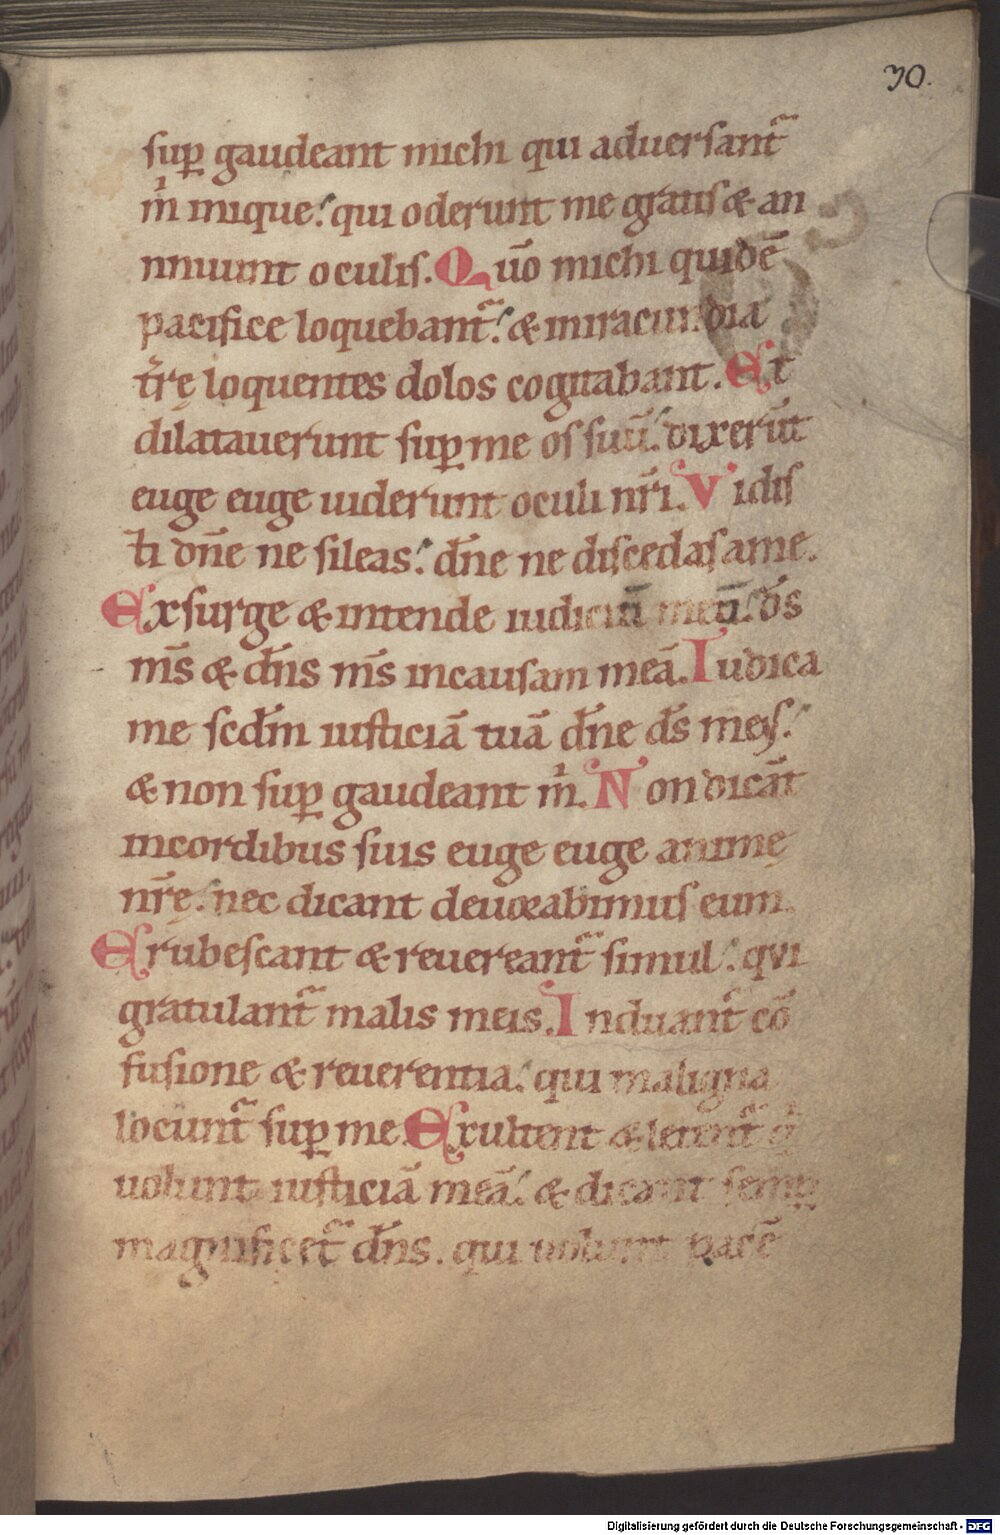 30.
suꝑ gaudeant michi qui aduersant᷑
m̍ inique. qui oderunt me gratis & an
nnuunt oculis. Quō michi quidē
pacifice loquebant᷑. & in iracundia
tr̄ę loquentes dolos cogitabant. Et
dilatauerunt suꝑ me os suū. dixer̄ut
euge euge uiderunt oculi nr̄i. Vidis
ti dn̄e ne sileas. dn̄e ne discedas a me.
Exsurge & intende iudiciū meū. ds̄
ms̄ & dn̄s ms̄ in causam meā. Iudica
me scdm̄ iusticiā tuā dn̄e ds̄ meus.
& non suꝑ gaudeant m̍. Non dicāt
in cordibus suis euge euge animę
nr̄ę. nec dicant deuorabimus eum.
Erubescant & reuereant᷑ simul. qui
gratulant᷑ malis meis. Induant᷑ cō
fusione & reuerentia. qui maligna
locunt᷑ suꝑ me. Exultent & letent᷑ q̍
uolunt iusticiā meā. & dicant semꝑ
magnificet᷑ dn̄s. qui uolunt pacē
Digitalisierung gefördert durch die Deutsche Forschungsgemeinschaft - DFG